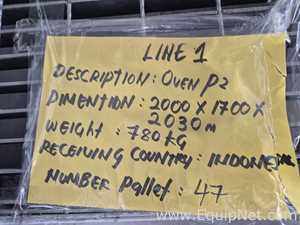 LINE 1
DESCRIPTION: OVEN P2
DIMENTION: 2000 X 1700 X
2030 m
WEIGHT: 780 KG
RECEIVING COUNTRY: INDONESIA
NUMBER Pallet: 47
www.EquipNet.com